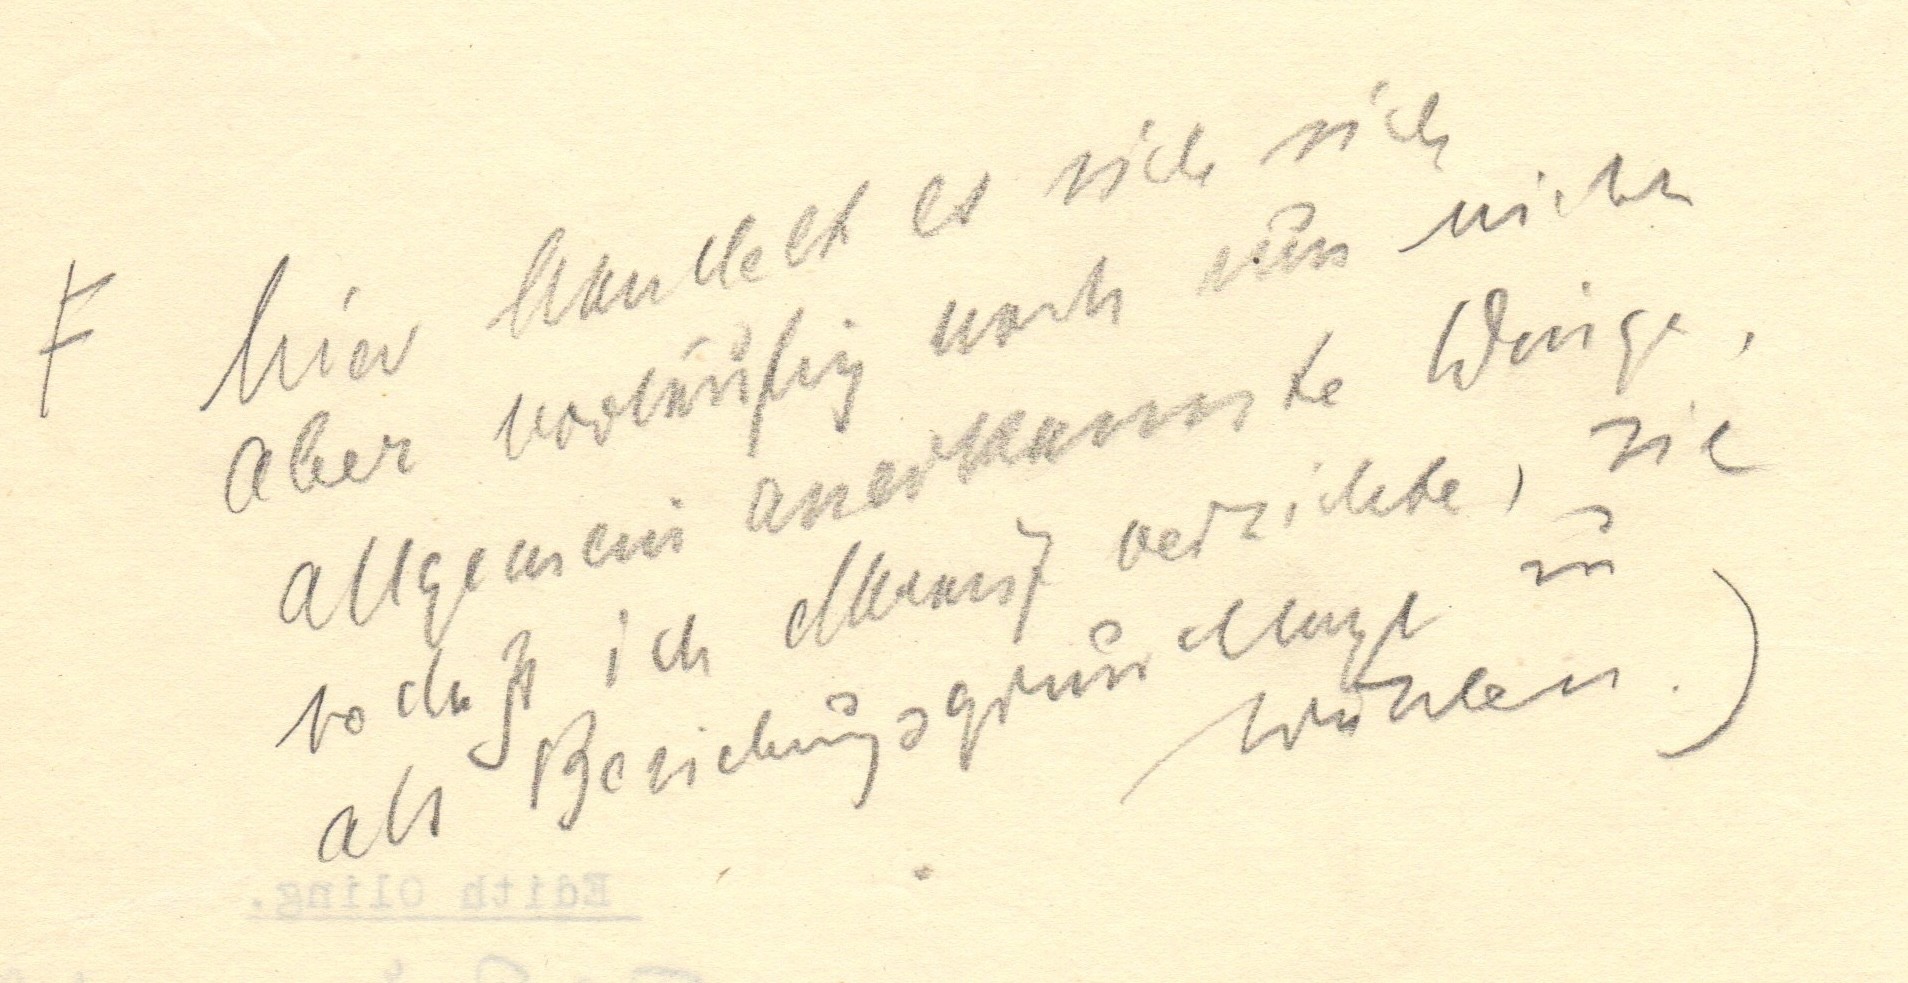 F hier handelt es sich sich
aber vorläufig noch um nicht
allgemein anerkannte Dinge,
sodaß ich darauf verzichte, sie
als Beziehungsgrundlage zu
wählen.)
Edith Oling.